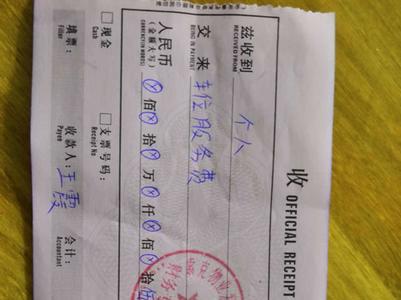 收 OFFICIAL RECEIPT
兹收到 个人
RECEIVED FROM
交来 车位服务费
BEING IN PAYMENT
人民币
(金额大写) ⊗佰⊗拾⊗万⊗仟⊗佰⊗拾伍
(AMOUNT IN WORDS)
□现金 □支票号码:
Cash Receipt No
填票: 收款人: 王霞 会计:
Filler Payee Accountant